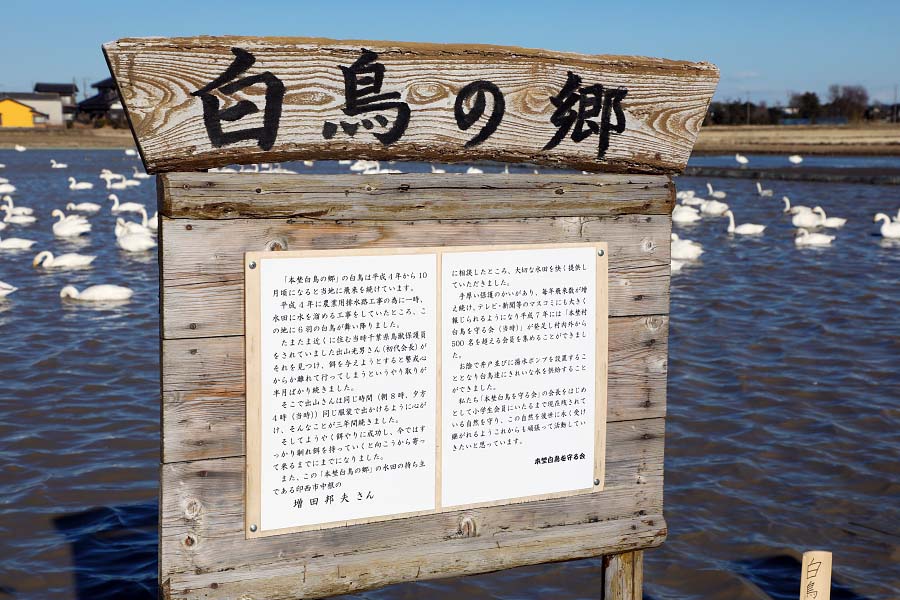 白鳥の郷
「本埜白鳥の郷」の白鳥は平成４年から10
月頃になると当地に飛来を続けています。
平成４年に農業用排水路工事の為に一時、
水田に水を溜める工事をしていたところ、こ
の地に６羽の白鳥が舞い降りました。
たまたま近くに住む当時千葉県鳥獣保護員
をされていました出山光男さん(初代会長)が
それを見つけ、餌を与えようとすると警戒心
からか離れて行ってしまうというやり取りが
半月ばかり続きました。
そこで出山さんは同じ時間(朝８時、夕方
４時(当時))同じ服装で出かけるように心が
け、そんなことが三年間続きました。
そしてようやく餌やりに成功し、今ではす
っかり馴れ餌を持っていくと向こうから寄っ
て来るまでにまでになりました。
また、この「本埜白鳥の郷」の水田の持ち主
である印西市中根の
増田邦夫さん
に相談したところ、大切な水田を快く提供し
ていただきました。
手厚い保護のかいがあり、毎年飛来数が増
え続け、テレビ・新聞等のマスコミにも大きく
報じられるようになり平成７年には「本埜村
白鳥を守る会(当時)」が発足し村内外から
500名を超える会員を集めることができまし
た。
お陰で井戸並びに揚水ポンプを設置するこ
ととなり白鳥達にきれいな水を供給すること
ができました。
私たち「本埜白鳥を守る会」の会長をはじめ
として小学生会員にいたるまで現在残されて
いる自然を守り、この自然を後世に永く受け
継がれるようこれからも頑張って活動してい
きたいと思っています。
本埜白鳥を守る会
白鳥